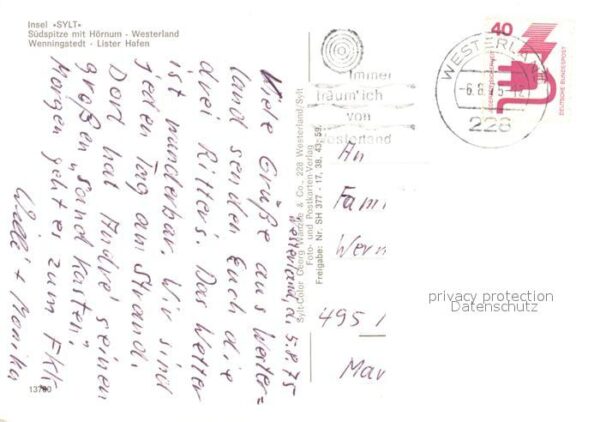 Insel »SYLT«
Südspitze mit Hörnum - Westerland
Wenningstedt - Lister Hafen
Westerland, d. 5.8.75
Viele Grüße aus Wester=
land senden Euch die
drei Ritters. Das Wetter
ist wunderbar. Wir sind
jeden Tag am Strand.
Dort hat André seinen
großen „Sandkasten".
Morgen geht es zum FKK
Willi + Monika
13760
Sylt-Color Georg & Co., 228 Westerland/Sylt
Foto- und Postkarten-Verlag
Freigabe: Nr. SH 377 - 17, 38, 43, 59.
Immer
träum' ich
von
Westerland
WESTERLA
228
40
DEUTSCHE BUNDESPOST
An
Fam
Wern
495
Mar
privacy protection
Datenschutz